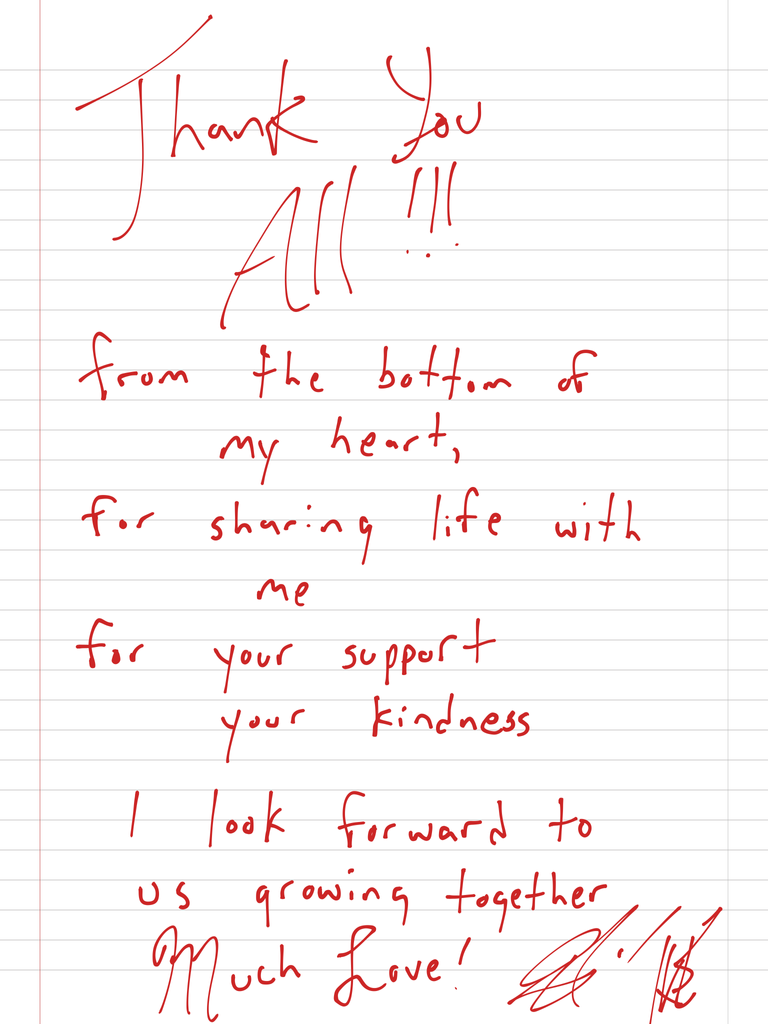 Thank You
All!!!
from the bottom of
my heart,
for sharing life with
me
for your support
your kindness
I look forward to
us growing together
Much Love!